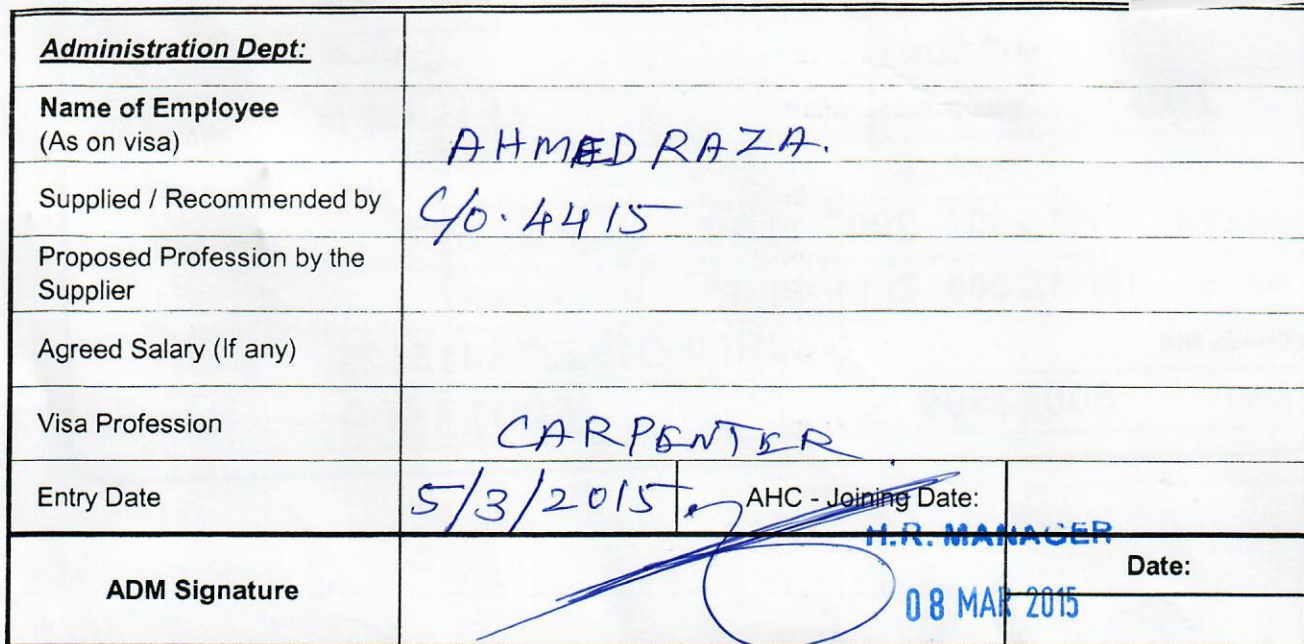 Administration Dept:
Name of Employee
(As on visa)
AHMED RAZA.
Supplied / Recommended by
C/o. 4415
Proposed Profession by the
Supplier
Agreed Salary (If any)
Visa Profession
CARPENTER
Entry Date
5/3/2015
AHC - Joining Date:
H.R. MANAGER
ADM Signature
Date:
08 MAR 2015